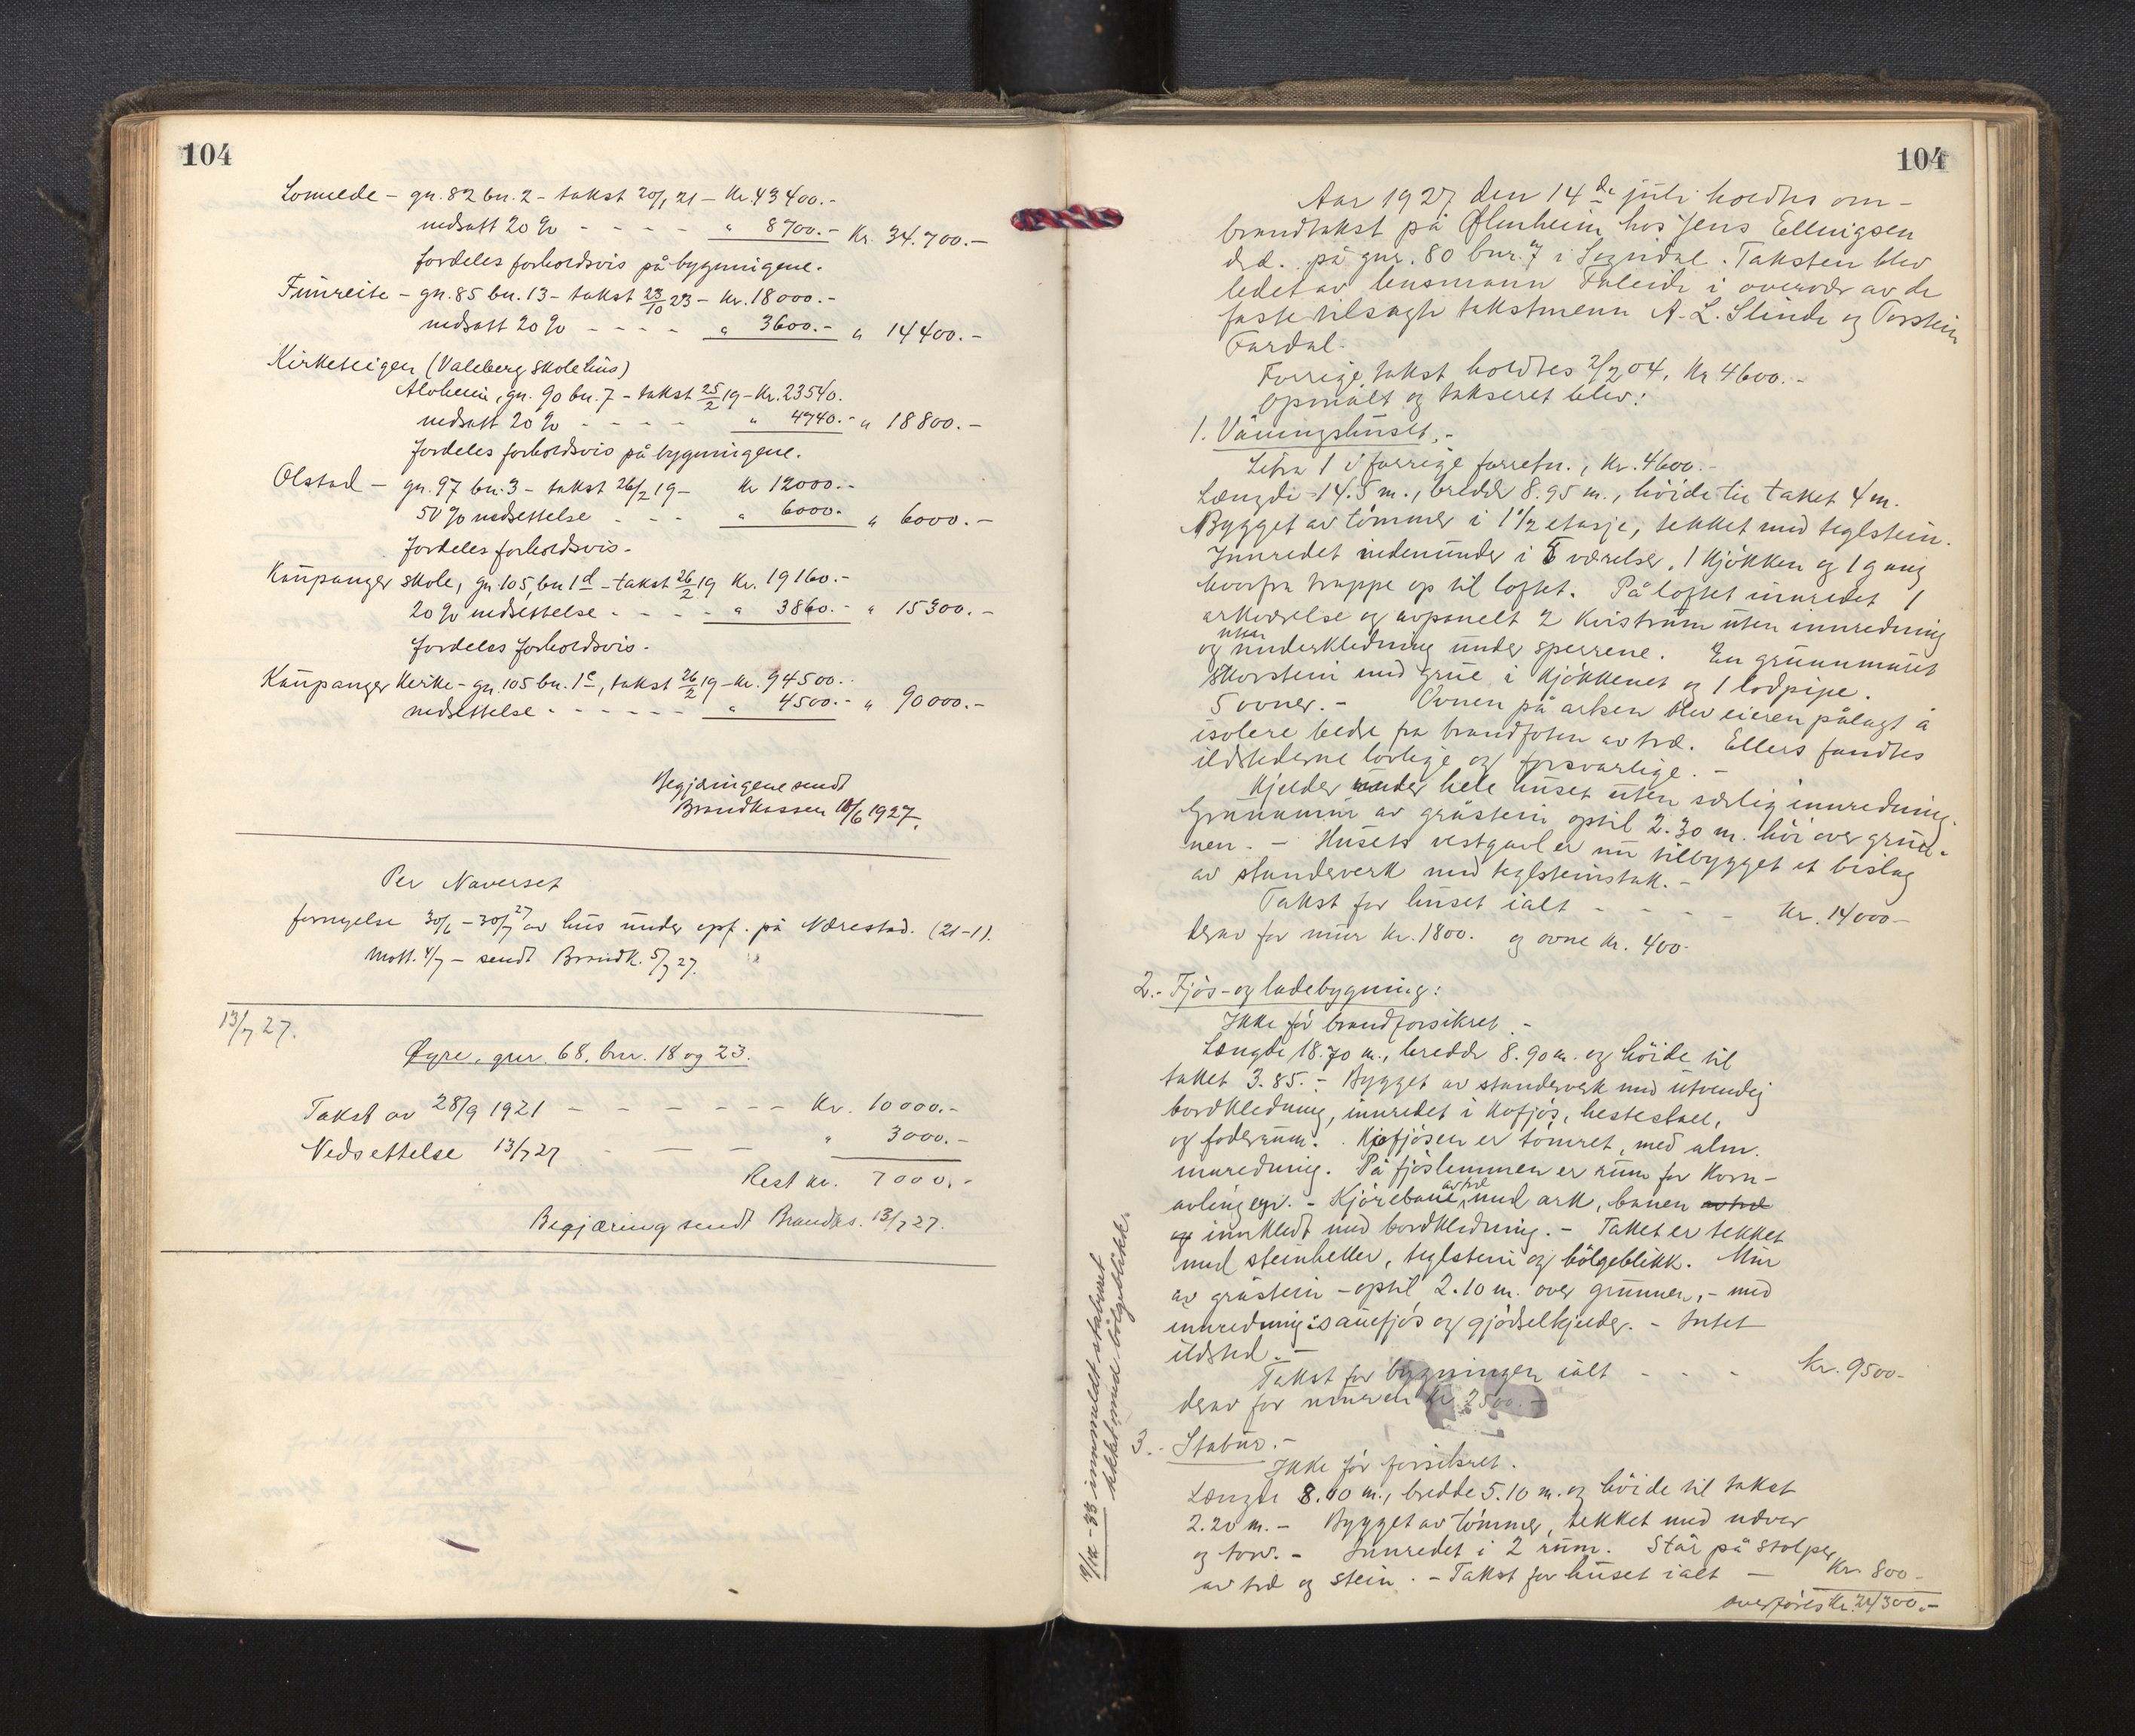 104
Lomelde - gn. 82 bn. 2 - takst 20/1 21 - Kr. 43400.-
nedsatt 20% - - - - " 8700.- Kr. 34.700.-
fordeles forholdsvis på bygningene.
Fimreite - gn. 85 bn. 13 - takst 23/10 23 - Kr. 18000.-
nedsatt 20% - - - - " 3600.- " 14400.-
Kirketeigen (Valeberg skolehus)
Alvheim, gn. 90 bn. 7 - takst 25/2 19 - Kr. 23540.
nedsatt 20% - - - - " 4740.- " 18800.-
fordeles forholdsvis på bygningene.
Olstad - gn. 97 bn. 3 - takst 26/2 19 - Kr 12000.-
50% nedsettelse - - - " 6000.- " 6000.-
fordeles forholdsvis.
Kaupanger skole, gn. 105, bn 1d - takst 26/2 19 Kr. 19160.-
20% nedsettelse - - - - " 3860.- " 15300.-
fordeles forholdsvis.
Kaupanger Kirke - gn. 105 bn. 1e, takst 26/2 19 - Kr. 94500.-
nedsettelse - - - - - - " 4500.- " 90000.-
Begjæringene sendt
Brandkassen 18/6 1927.
Per Naverset
fornyelse 30/6 - 30/7 27 av hus under opf. på Nærestad. (21-1).
Mott. 4/7 - sendt Brandk. 5/7 27.
13/7 27.
Øyre, gnr. 68, bnr. 18 og 23.
Takst av 28/9 1921 - - - - - - Kr. 10000.-
Nedsettelse 13/7 27 - - - " 3000.-
Rest kr. 7000.-
Begjæring sendt Brandks. 13/7 27.
104
Aar 1927 den 14de juli holdtes om-
brandtakst på Ølmheim hos Jens Ellingsen
dsd. på gnr. 80 bnr. 7 i Sogndal. Taksten blev
ledet av lensmann Faleide i overvær av de
faste tilsagte takstmenn A. L. Slinde og Torstein
Fardal.
Forrige takst holdtes 2/2 04, Kr 4600.-
Opmålt og takseret blev:
1. Våningshuset.-
Litra 1 i forrige forretn., Kr. 4600.-
Længde 14.5 m., bredde 8.95 m., höide til taket 4 m.
Bygget av tömmer i 1 1/2 etasje, tekket med teglstein.
Innredet nedenunder i 5 værelser, 1 kjökken og 1 gang
hvorfra trappe op til loftet. På loftet innredet 1
arkværelse og avpanelt 2 kvistrum uten innredning
og uten underkledning under sperrene. En grunnmuret
skorstein med grue i kjökkenet og 1 lodpipe.
5 ovner.- Ovnen på arken blev eieren pålagt å
isolere bedre fra brandfoten av træ. Ellers fandtes
ildstederne lovlige og forsvarlige.-
Kjelder under hele huset uten særlig innredning.
Grunnmur av gråstein optil 2.30 m. höi over grun-
nen.- Husets vestgavl er nu tilbygget et bislag
av standerverk med teglsteinstak.-
Takst for huset ialt - - - - Kr. 14000-
derav for mur Kr. 1800. og ovne Kr. 400.
2.- Fjös- og ladebygning:
Ikke för brandforsikret.-
Længde 18.70 m., bredde 8.90 m. og höide til
taket 3.85.- Bygget av standerverk med utvendig
bordkledning, innredet i kufjös, hestestall,
og foderrum. Kufjösen er tömret, med alm.
innredning. På fjöslemmen er rum for korn-
avlingen.- Kjörebane av træ med ark, banen av træ
og innkledt med bordkledning.- Taket er tekket
med steinheller, teglstein og bölgeblikk. Mur
av gråstein - optil 2.10 m. over grunnen,- med
innredning: sauefjös og gjödselkjelder.- Intet
ildsted.-
Takst for bygningen ialt - - - Kr. 9500-
derav for muren Kr 2500.-
3.- Stabur.-
Ikke för forsikret.
Længde 8.10 m., bredde 5.10 m. og höide til taket
2.20 m.- Bygget av tömmer, tekket med næver
og torv.- Innredet i 2 rum. Står på stolper
av træ og stein.- Takst for huset ialt - Kr. 800-
overföres Kr. 24300.-
9/12-33 innmeldt staburet
tekket med bölgeblikk.